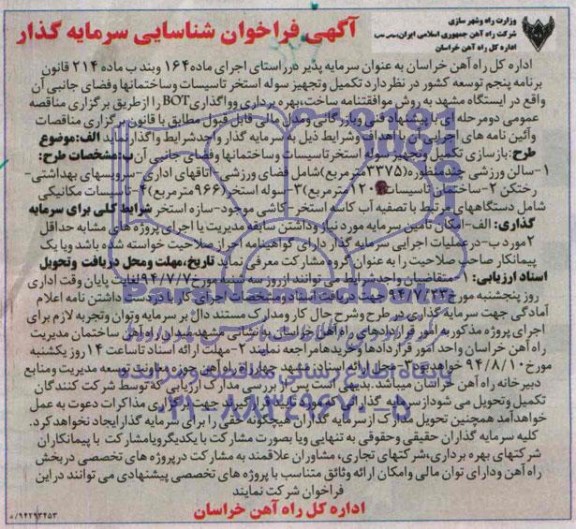 وزارت راه وشهر سازی
شرکت راه آهن جمهوری اسلامی ایران(سهامی خاص)
اداره کل راه آهن خراسان
آگهی فراخوان شناسایی سرمایه گذار
اداره کل راه آهن خراسان به عنوان سرمایه پذیر در راستای اجرای ماده ۱۶۴ وبند ب ماده ۲۱۴ قانون
برنامه پنجم توسعه کشور در نظر دارد تکمیل وتجهیز سوله استخر تاسیسات وساختمانها وفضای جانبی آن
واقع در ایستگاه مشهد به روش موافقتنامه ساخت،بهره برداری وواگذاری BOT را از طریق برگزاری مناقصه
عمومی دومرحله ای با پیشنهاد فنی وبازرگانی ومدل مالی قابل قبول مطابق با قانون برگزاری مناقصات
وآئین نامه های اجرایی آن با اهداف وشرایط ذیل به سرمایه گذار واجدشرایط واگذار نماید الف:موضوع
طرح:بازسازی تکمیل وتجهیز سوله استخر تاسیسات وساختمانها وفضای جانبی آن ب:مشخصات طرح:
۱-سالن ورزشی چندمنظوره(۳۳۷۵مترمربع)شامل فضای ورزشی -اتاقهای اداری-سرویسهای بهداشتی-
رختکن ۲-ساختمان تاسیسات مترمربع)۳-سوله استخر(۹۶۶مترمربع)۴-تاسیسات مکانیکی
شامل دستگاههای مرتبط با تصفیه آب کاسه استخر-کاشی موجود-سازه استخر شرایط کلی برای سرمایه
گذاری: الف-امکان تامین سرمایه مورد نیاز وداشتن سابقه مدیریت یا اجرای پروژه های مشابه حداقل
۲مورد ب-در عملیات اجرایی سرمایه گذار دارای گواهینامه احراز صلاحیت خواسته شده باشد ویا یک
پیمانکار صاحب صلاحیت را به عنوان گروه مشارکت معرفی نماید تاریخ،مهلت ومحل دریافت وتحویل
اسناد ارزیابی: ۱-متقاضیان واجدشرایط می توانند از روز سه شنبه مورخ ۹۴/۷/۷ لغایت پایان وقت اداری
روز پنجشنبه مورخ ۹۴/۷/۲۳ جهت دریافت اسناد ومشخصات اجرای کار با در دست داشتن نامه اعلام
آمادگی جهت سرمایه گذاری در طرح وشرح حال کار ومدارک مستند دال بر سرمایه وتوان وتجربه لازم برای
اجرای پروژه مذکور به امور قراردادهای راه آهن خراسان به نشانی مشهد میدان راه آهن ساختمان مدیریت
راه آهن خراسان واحد امور قراردادها وخریدها مراجعه نمایند ۲-مهلت ارائه اسناد تا ساعت ۱۴ روز یکشنبه
مورخ ۹۴/۸/۱۰ خواهد بود ۳-محل ارائه اسناد: مشهد چهارراه راه آهن حوزه معاونت توسعه مدیریت ومنابع
دبیرخانه راه آهن خراسان میباشد.بدیهی است پس از بررسی مدارک ارزیابی که توسط شرکت کنندگان
تکمیل وتحویل می شود از سرمایه گذارانی که مورد تایید قرار گیرند جهت برگزاری مذاکرات دعوت به عمل
خواهد آمد همچنین تحویل مدارک از سرمایه گذاران هیچگونه حقی را برای سرمایه گذار ایجاد نخواهد کرد.
کلیه سرمایه گذاران حقیقی وحقوقی به تنهایی ویا بصورت مشارکت با یکدیگر ویا مشارکت با پیمانکاران
شرکتهای بهره برداری،شرکتهای تجاری،مشاوران علاقمند به مشارکت در پروژه های تخصصی در بخش
راه آهن ودارای توان مالی وامکان ارائه وثائق متناسب با پروژه های تخصصی پیشنهادی می توانند در این
فراخوان شرکت نمایند
اداره کل راه آهن خراسان
۰۲۱-۸۸۳۴۹۶۷۰-۵